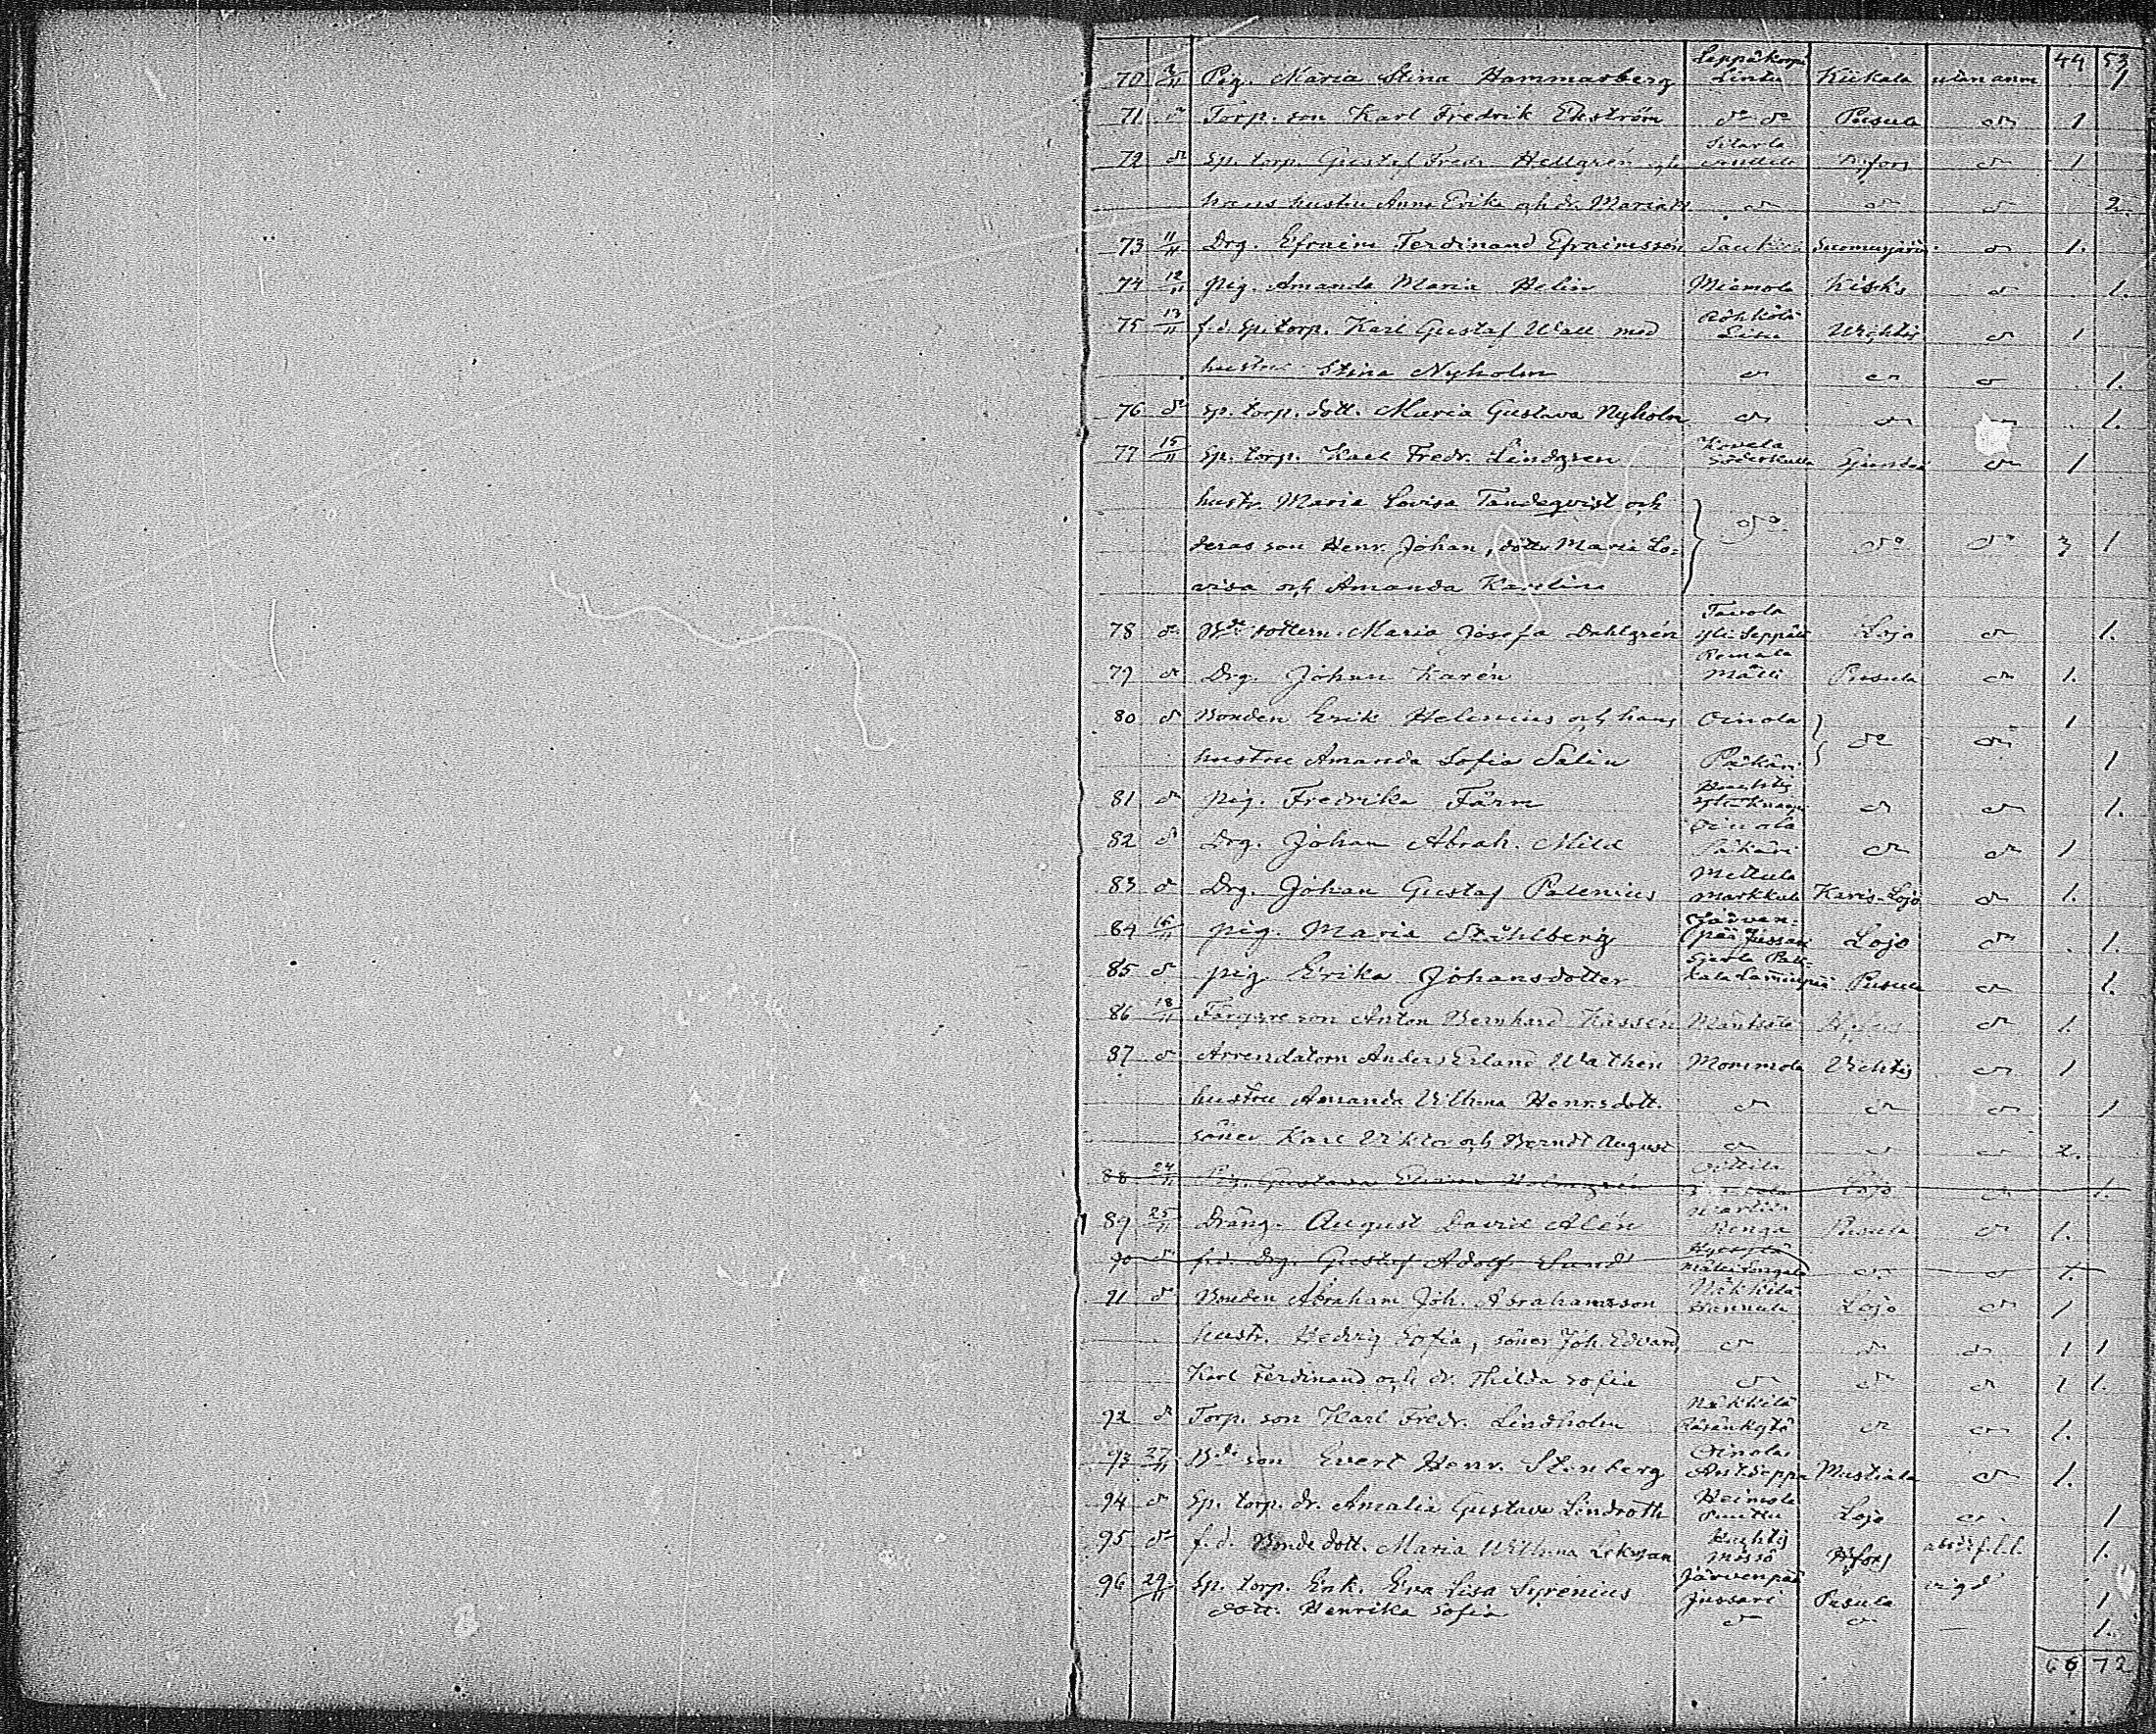 44 53
70 2/11 Pig. Maria Stina Hammarberg Leppäkorpi Linda Kiikala utan anm 1
71 do Torp. son Karl Fredrik Ekström do do Pusula do 1
72 do Sp. torp. Gustaf Fredr. Hellgrén och Hfors do 1
hans hustru Anna Erika och dr. Maria do do do 2.
73 11/11 Drg. Efraim Ferdinand Efraimsson Suomusjärvi do 1.
74 12/11 pig. Amanda Maria Helin Miemola Kisko do 1.
75 13/11 f.d. Sp. torp. Karl Gustaf Wall med Wichtis do 1
hustru Stina Nyholm do do do 1.
76 do sp. torp. dott. Maria Gustava Nyholm do do do 1.
77 15/11 Sp. torp. Karl Fredr. Lindgren Kovela Söderkulla Sjundeå do 1
hustr. Maria Lovisa Tandeqvist och
deras son Henr. Johan, döttr Maria Lo- do do do 3 1
visa och Amanda Karolina
78 do Bde dottern. Maria Josefa Dahlgrén Tavola Yli-Seppälä Lojo do 1.
79 do Drg. Johan Karén Remala Mälli Pusula do 1.
80 do Bonden Erik Helenius och hans Oinola do do 1
hustru Amanda Sofia Salin Päkäri 1
81 do pig. Fredrika Färm do do 1.
82 do Drg. Johan Abrah. Mild Oinola Päkäri do do 1
83 do Drg. Johan Gustaf Palenius Mettula Markkula Karis-Lojo do 1.
84 16/11 pig. Maria Ståhlberg Järven- pää Jussari Lojo do 1.
85 do pig. Erika Johansdotter Pusula do 1.
86 18/11 Färgare son Anton Bernhard Hfors do 1.
87 do Arrendatorn Anders Erland Wathen Mommola Vichtis do 1
hustru Amanda Vilhma Henrsdott. do do do 1
söner Karl Viktor och Berndt August do do do 2.
88 24/11 Pig. Gustava Lojo do 1.
89 25/11 Dräng. August David Alén Renga Pusula do 1.
90 do f.d. drg. Gustaf Adolf Sund do do 1.
91 do Bonden Abraham Joh. Abrahamsson Näkkilä Hannula Lojo do 1
hustr. Hedvig Sofia, söner Joh. Edvard, do do do 1 1
Karl Ferdinand och dr. Thilda Sofia do do do 1 1.
92 do Torp. son Karl Fredr. Lindholm Näkkilä Räsänkytö do do 1.
93 27/11 Bde son Evert Henr. Stenberg Oinola Antseppä Mustiala do 1.
94 do Sp. torp. dr. Amalia Gustava Lindroth Heimola Lojo do 1
95 do f.d. Bonde dott. Maria Wilhna Hfors 1.
96 29/11 Sp. torp. Enk. Eva Lisa Syrenius Järvenpää Jussari Pusula vigd 1
dott. Henrika Sofia do do — 1.
66 72